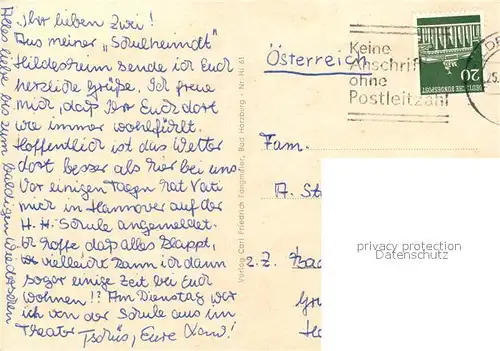 Ihr lieben Zwei!
Aus meiner „Schulheimdt"
Hildesheim sende ich Euch
herzliche Grüße. Ich freue
mich, daß Ihr Euch dort
wie immer wohlfühlt.
Hoffentlich ist das Wetter
dort besser als hier bei uns.
Vor einigen Tagen hat Vati
mich in Hannover auf der
H. H. Schule angemeldet.
Ich hoffe daß alles klappt,
vielleicht kann ich dann
sogar einige Zeit bei Euch
wohnen!! Am Dienstag war
ich von der Schule aus im
Theater Tschüs, Eure
Alles liebe bis zum baldigen Wiedersehen
Verlag Carl Friedrich Fangmeier, Bad Harzburg - Nr. Hi 61
Österreich
Keine
Anschrift
ohne
Postleitzahl
20
DEUTSCHE BUNDESPOST
Fam.
A. St
z. Z.
privacy protection
Datenschutz